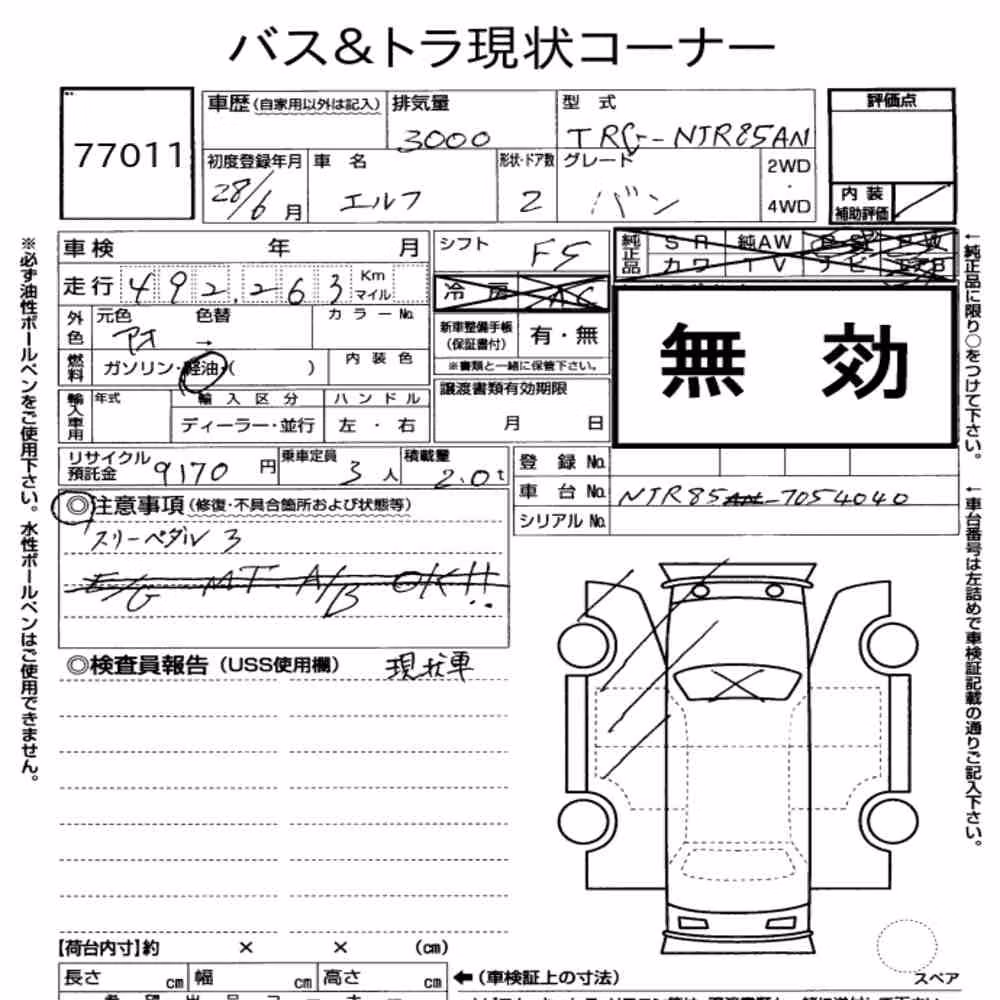 バス&トラ現状コーナー
77011
車歴(自家用以外は記入)
排気量
3000
型 式
TRG-NJR85AN
評価点
初度登録年月
28/6月
車 名
エルフ
形状・ドア数
2
グレード
バン
2WD
・
4WD
内 装
補助評価
車検 年 月
走行 492,263 Km マイル
シフト
F5
純正品
SR 純AW PS PW
カワ TV ナビ エアB
冷 房 AC
外色
元色
アオ
色替
→
カラーNo.
新車整備手帳
(保証書付)
有・無
※書類と一緒に保管下さい。
燃料
ガソリン・軽油・( )
内装色
無 効
輸入車用
年式
輸入区分
ディーラー・並行
ハンドル
左 ・ 右
譲渡書類有効期限
月 日
リサイクル
預託金
9170円
乗車定員
3人
積載量
2.0t
登 録 No.
車 台 No.
NJR85AN-7054040
シリアル No.
◎注意事項(修復・不具合箇所および状態等)
スリーペダル 3
E/G MT A/B OK!!
◎検査員報告(USS使用欄)
現状車
※必ず油性ボールペンをご使用下さい。水性ボールペンはご使用できません。
←純正品に限り○をつけて下さい。
←車台番号は左詰めで車検証記載の通りご記入下さい。
【荷台内寸】約 × × (cm)
長さ cm 幅 cm 高さ cm
←(車検証上の寸法)
スペア